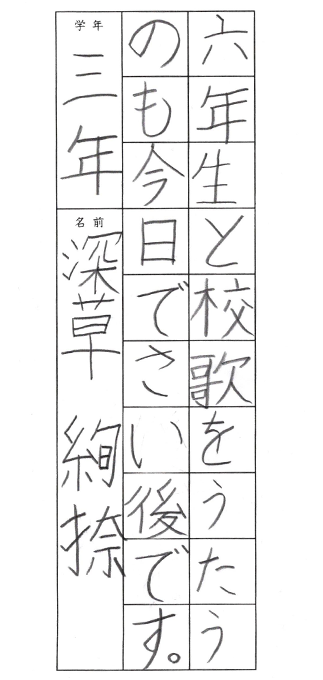 六年生と校歌をうたう
のも今日でさい後です。
学年
三年
名前
深草 絢捺